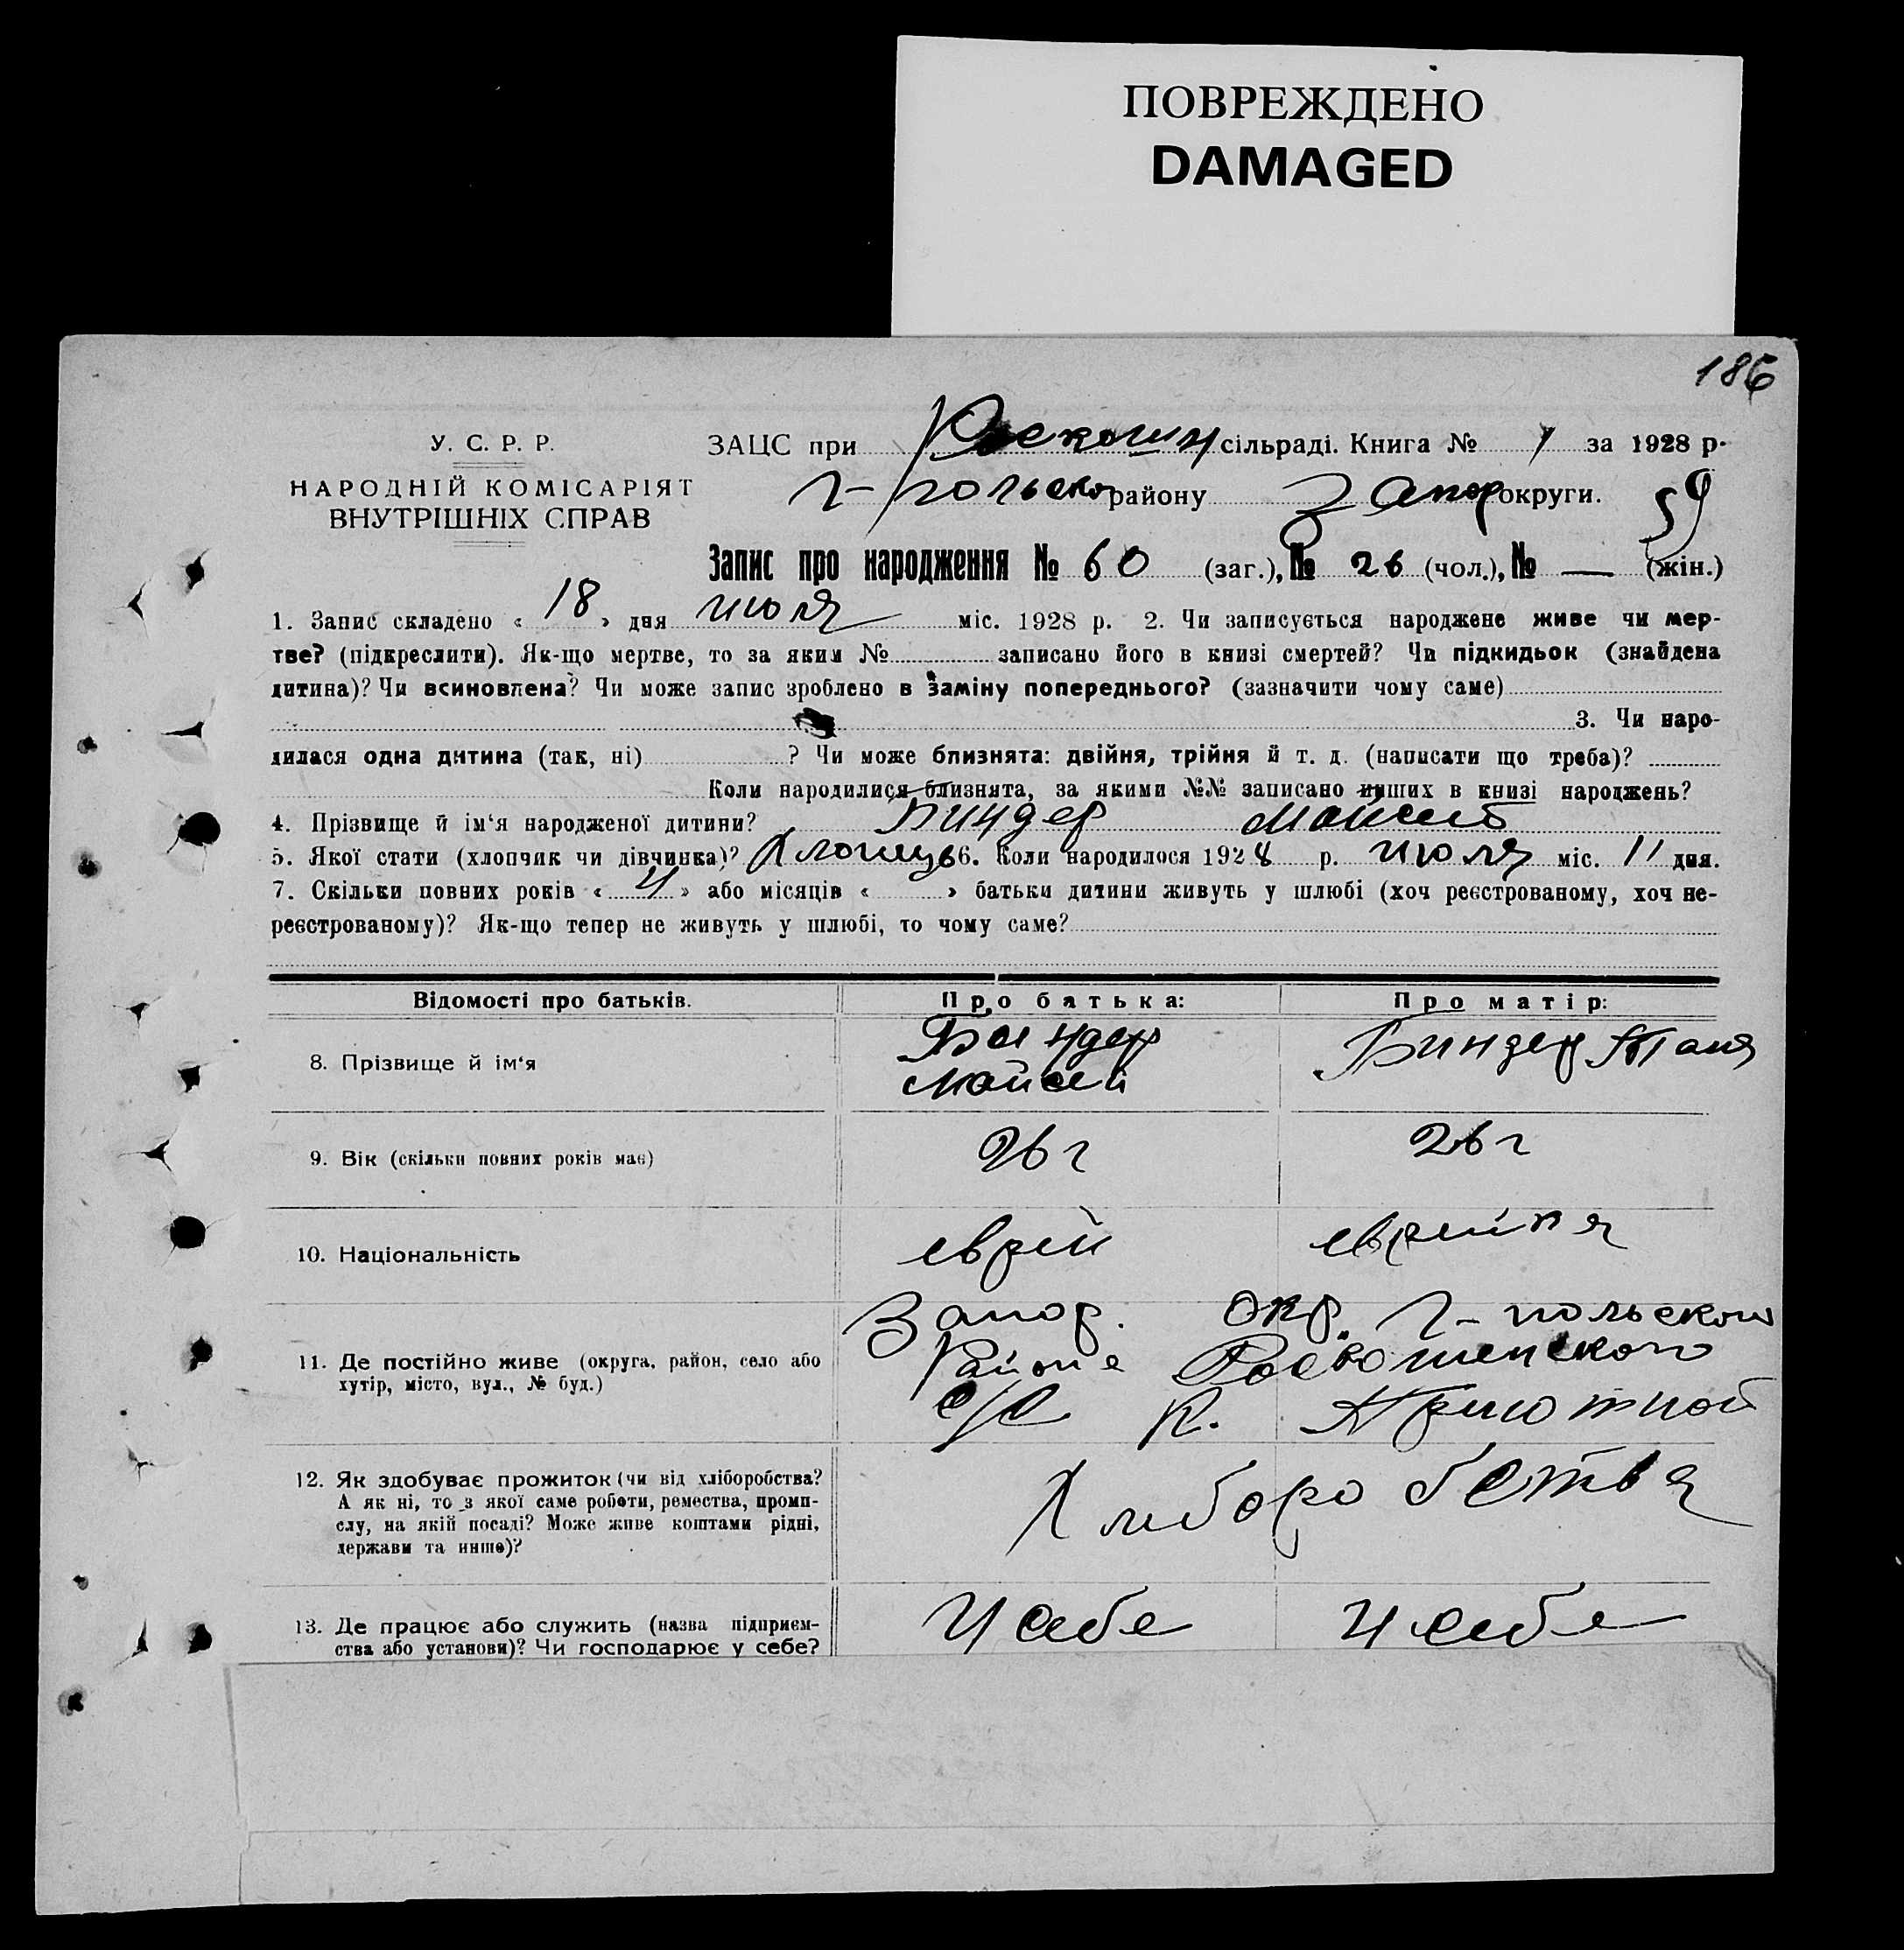 ПОВРЕЖДЕНО
DAMAGED
186
У. С. Р. Р.
НАРОДНІЙ КОМІСАРІЯТ
ВНУТРІШНІХ СПРАВ
ЗАЦС при сільраді. Книга № 1 за 1928 р.
Г-польско району Запор округи. 59
Запис про народження № 60 (заг.), № 26 (чол.), № — (жін.)
1. Запис складено « 18 » дня июля міс. 1928 р. 2. Чи записується народжене живе чи мер-
тве? (підкреслити). Як-що мертве, то за яким № записано його в книзі смертей? Чи підкидьок (знайдена
дитина)? Чи всиновлена? Чи може запис зроблено в заміну попереднього? (зазначити чому саме)
3. Чи наро-
дилася одна дитина (так, ні) ? Чи може близнята: двійня, трійня й т. д. (написати що треба)?
Коли народилися близнята, за якими №№ записано инших в книзі народжень?
4. Прізвище й ім'я народженої дитини? Биндер
5. Якої стати (хлопчик чи дівчинка)? Хлопець 6. Коли народилося 1928 р. июля міс. 11 дня.
7. Скільки повних років « 4 » або місяців « » батьки дитини живуть у шлюбі (хоч реєстрованому, хоч не-
реєстрованому)? Як-що тепер не живуть у шлюбі, то чому саме?
Відомості про батьків. Про батька: Про матір:
8. Прізвище й ім'я Биндер Мойсей Биндер Таня
9. Вік (скільки повних років має) 26 г 26 г
10. Національність еврей еврейка
11. Де постійно живе (округа, район, село або
хутір, місто, вул., № буд.)
Запор. Окр. Г-польского
Района
с/с к. Приютной
12. Як здобуває прожиток (чи від хліборобства?
А як ні, то з якої саме роботи, ремества, промп-
слу, на якій посаді? Може живе коштами рідні,
держави та инше)?
Хлиборобства
13. Де працює або служить (назва підприєм-
ства або установи)? Чи господарює у себе?
У себе У себе